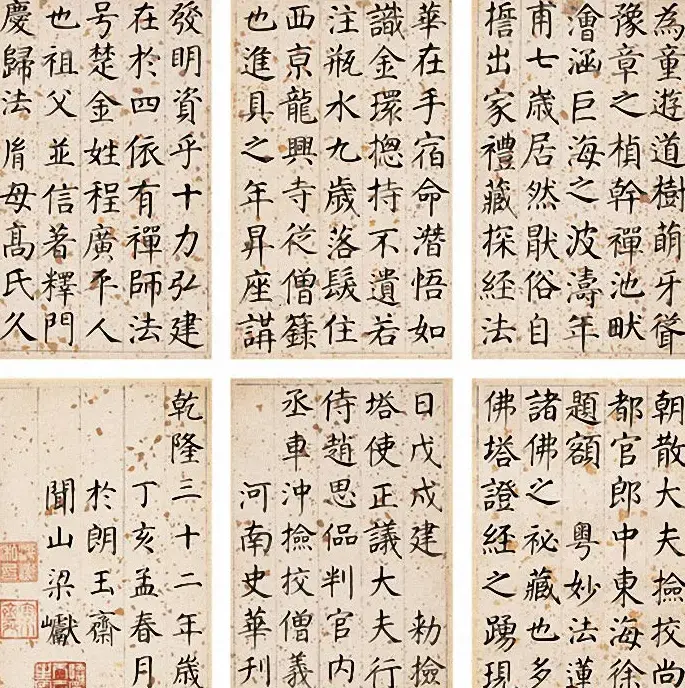 為童遊道樹萌牙聳
豫章之楨幹禪池畎
澮涵巨海之波濤年
甫七歲居然猒俗自
擔出家禮藏探經法
華在手宿命潛悟如
識金環揔持不遺若
注瓶水九歲落髮住
西京龍興寺從僧籙
也進具之年昇座講
發明資乎十力弘建
在於四依有禪師法
号楚金姓程廣平人
也祖父並信著釋門
慶歸法胤母高氏久
朝散大夫撿挍尚
都官郎中東海徐
題額 粵妙法蓮
諸佛之祕藏也多
佛塔證經之踴現
日戊戌建 勅撿
塔使正議大夫行
侍趙思偘判官内
丞車沖撿挍僧義
河南史華刊
乾隆三十二年歲
丁亥孟春月
於朗玉齋
聞山梁巘